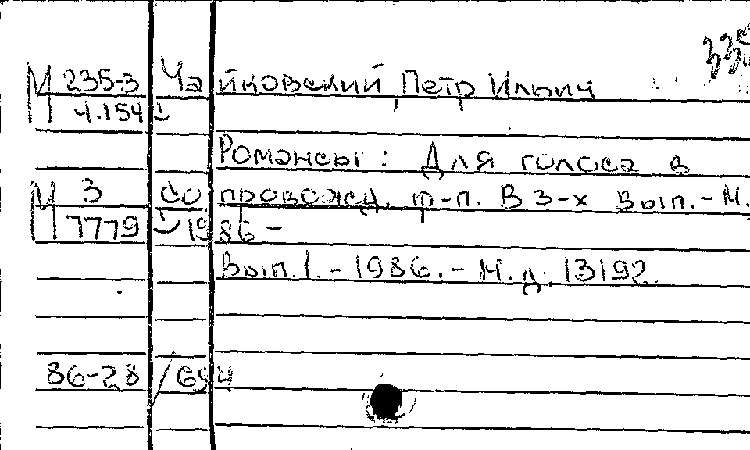 335
М 235-3 Чайковский, Петр Ильич
4.154
Романсы: Для голоса в
М 3 сопровожд. ф-п. В 3-х вып. - М.
7779 1986 -
Вып. 1. - 1986. - М.д. 13192
86-28/694